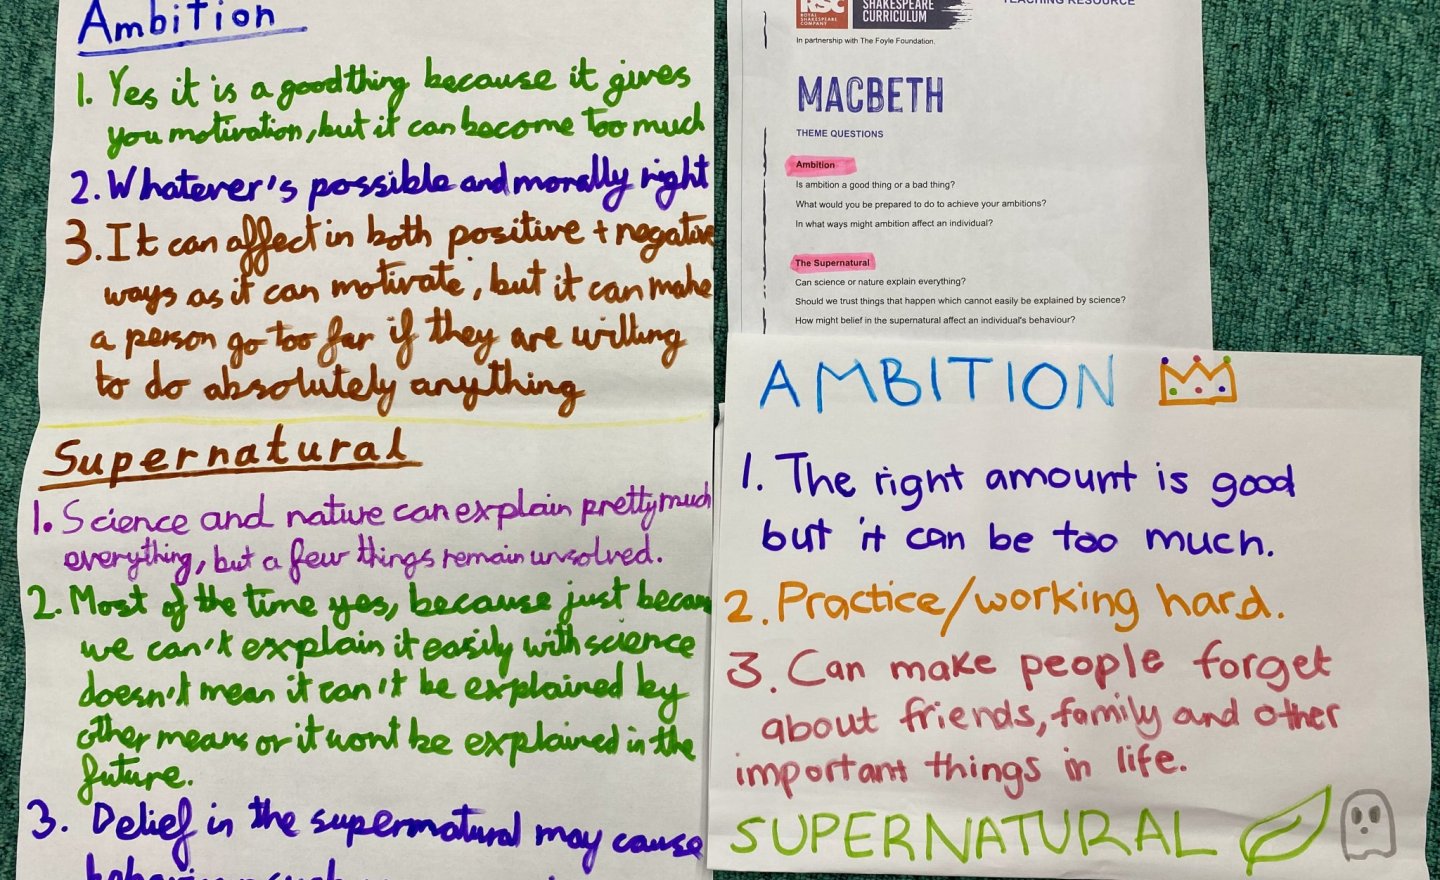 Ambition
1. Yes it is a good thing because it gives
you motivation, but it can become too much
2. Whatever's possible and morally right
3. It can affect in both positive + negative
ways as it can motivate, but it can make
a person go too far if they are willing
to do absolutely anything
Supernatural
1. Science and nature can explain pretty much
everything, but a few things remain unsolved.
2. Most of the time yes, because just
we can't explain it easily with science
doesn't mean it can't be explained by
other means or it wont be explained in the
future.
3. Belief in the supernatural may cause
RSC
ROYAL
SHAKESPEARE
COMPANY
SHAKESPEARE
CURRICULUM
TEACHING RESOURCE
In partnership with The Foyle Foundation.
MACBETH
THEME QUESTIONS
Ambition
Is ambition a good thing or a bad thing?
What would you be prepared to do to achieve your ambitions?
In what ways might ambition affect an individual?
The Supernatural
Can science or nature explain everything?
Should we trust things that happen which cannot easily be explained by science?
How might belief in the supernatural affect an individual's behaviour?
AMBITION
1. The right amount is good
but it can be too much.
2. Practice/working hard.
3. Can make people forget
about friends, family and other
important things in life.
SUPERNATURAL